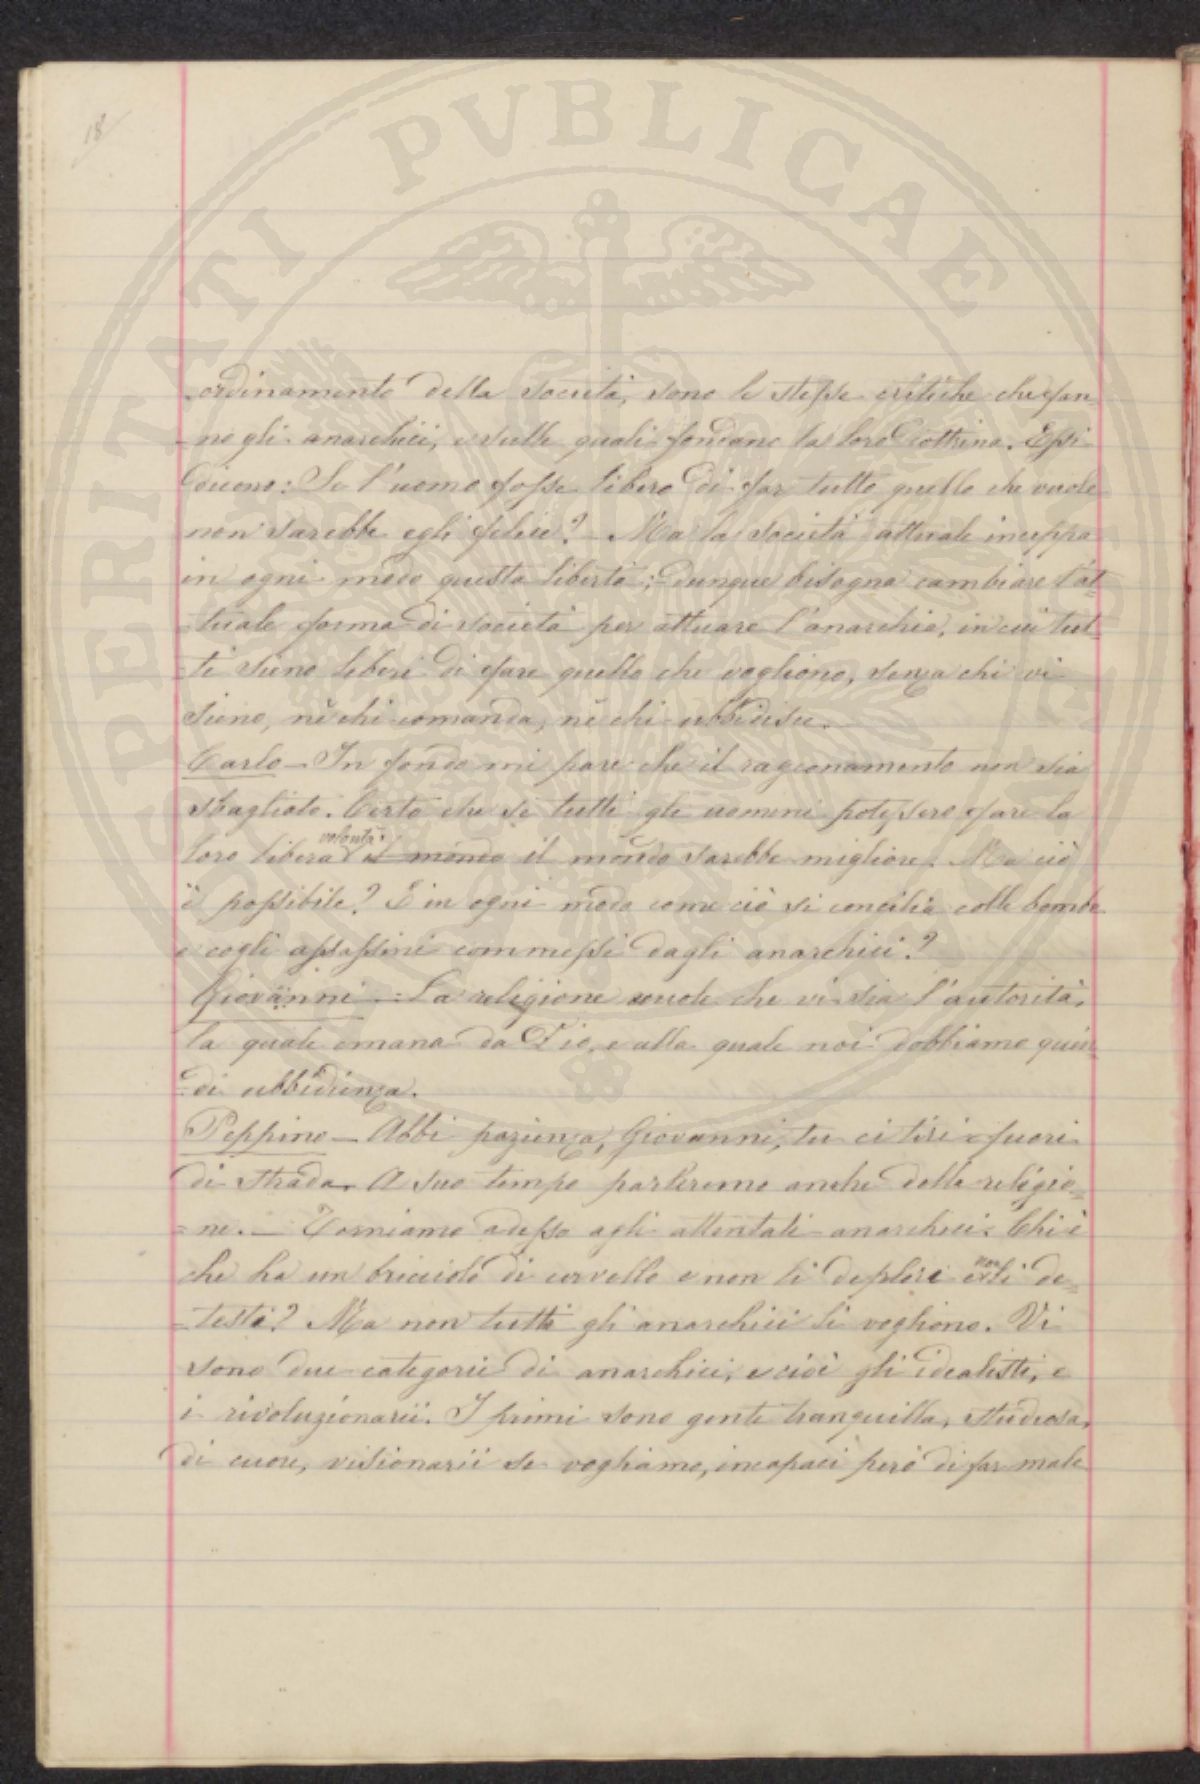 18
ordinamento della società, sono le stesse critiche che fan
no gli anarchici, e sulle quali fondano la loro dottrina. Essi
dicono: Se l'uomo fosse libero di far tutto quello che vuole
non sarebbe egli felice? Ma la società attuale inceppa
in ogni modo questa libertà; dunque bisogna cambiare l'at=
tuale forma di società per attuare l'anarchia, in cui tut
ti sieno liberi di fare quello che vogliono, senza chi vi
sieno, nè chi comanda, nè chi ubbidisce.
Carlo - In fondo mi pare che il ragionamento non sia
sbagliato. Certo che se tutti gli uomini potessero fare la
loro libera volontà il mondo il mondo sarebbe migliore. Ma ciò
è possibile? E in ogni modo come ciò si concilia colle bombe
e cogli assassini commessi dagli anarchici?
Giovanni - La religione vuole che vi sia l'autorità,
la quale emana da Dio, e alla quale noi dobbiamo quin
di ubbidienza.
Peppino - Abbi pazienza, Giovanni, tu ci tiri fuori
di strada. A suo tempo parleremo anche della religio=
=ne. - Torniamo adesso agli attentati anarchici. Chi è
che ha un briciolo di cervello e non li deplori e non li de=
testi? Ma non tutti gli anarchici li vogliono. Vi
sono due categorie di anarchici, e cioè gli idealisti, e
i rivoluzionarii. I primi sono gente tranquilla, studiosa,
di cuore, visionarii se vogliamo, incapaci però di far male
PERITATI PVBLICAE